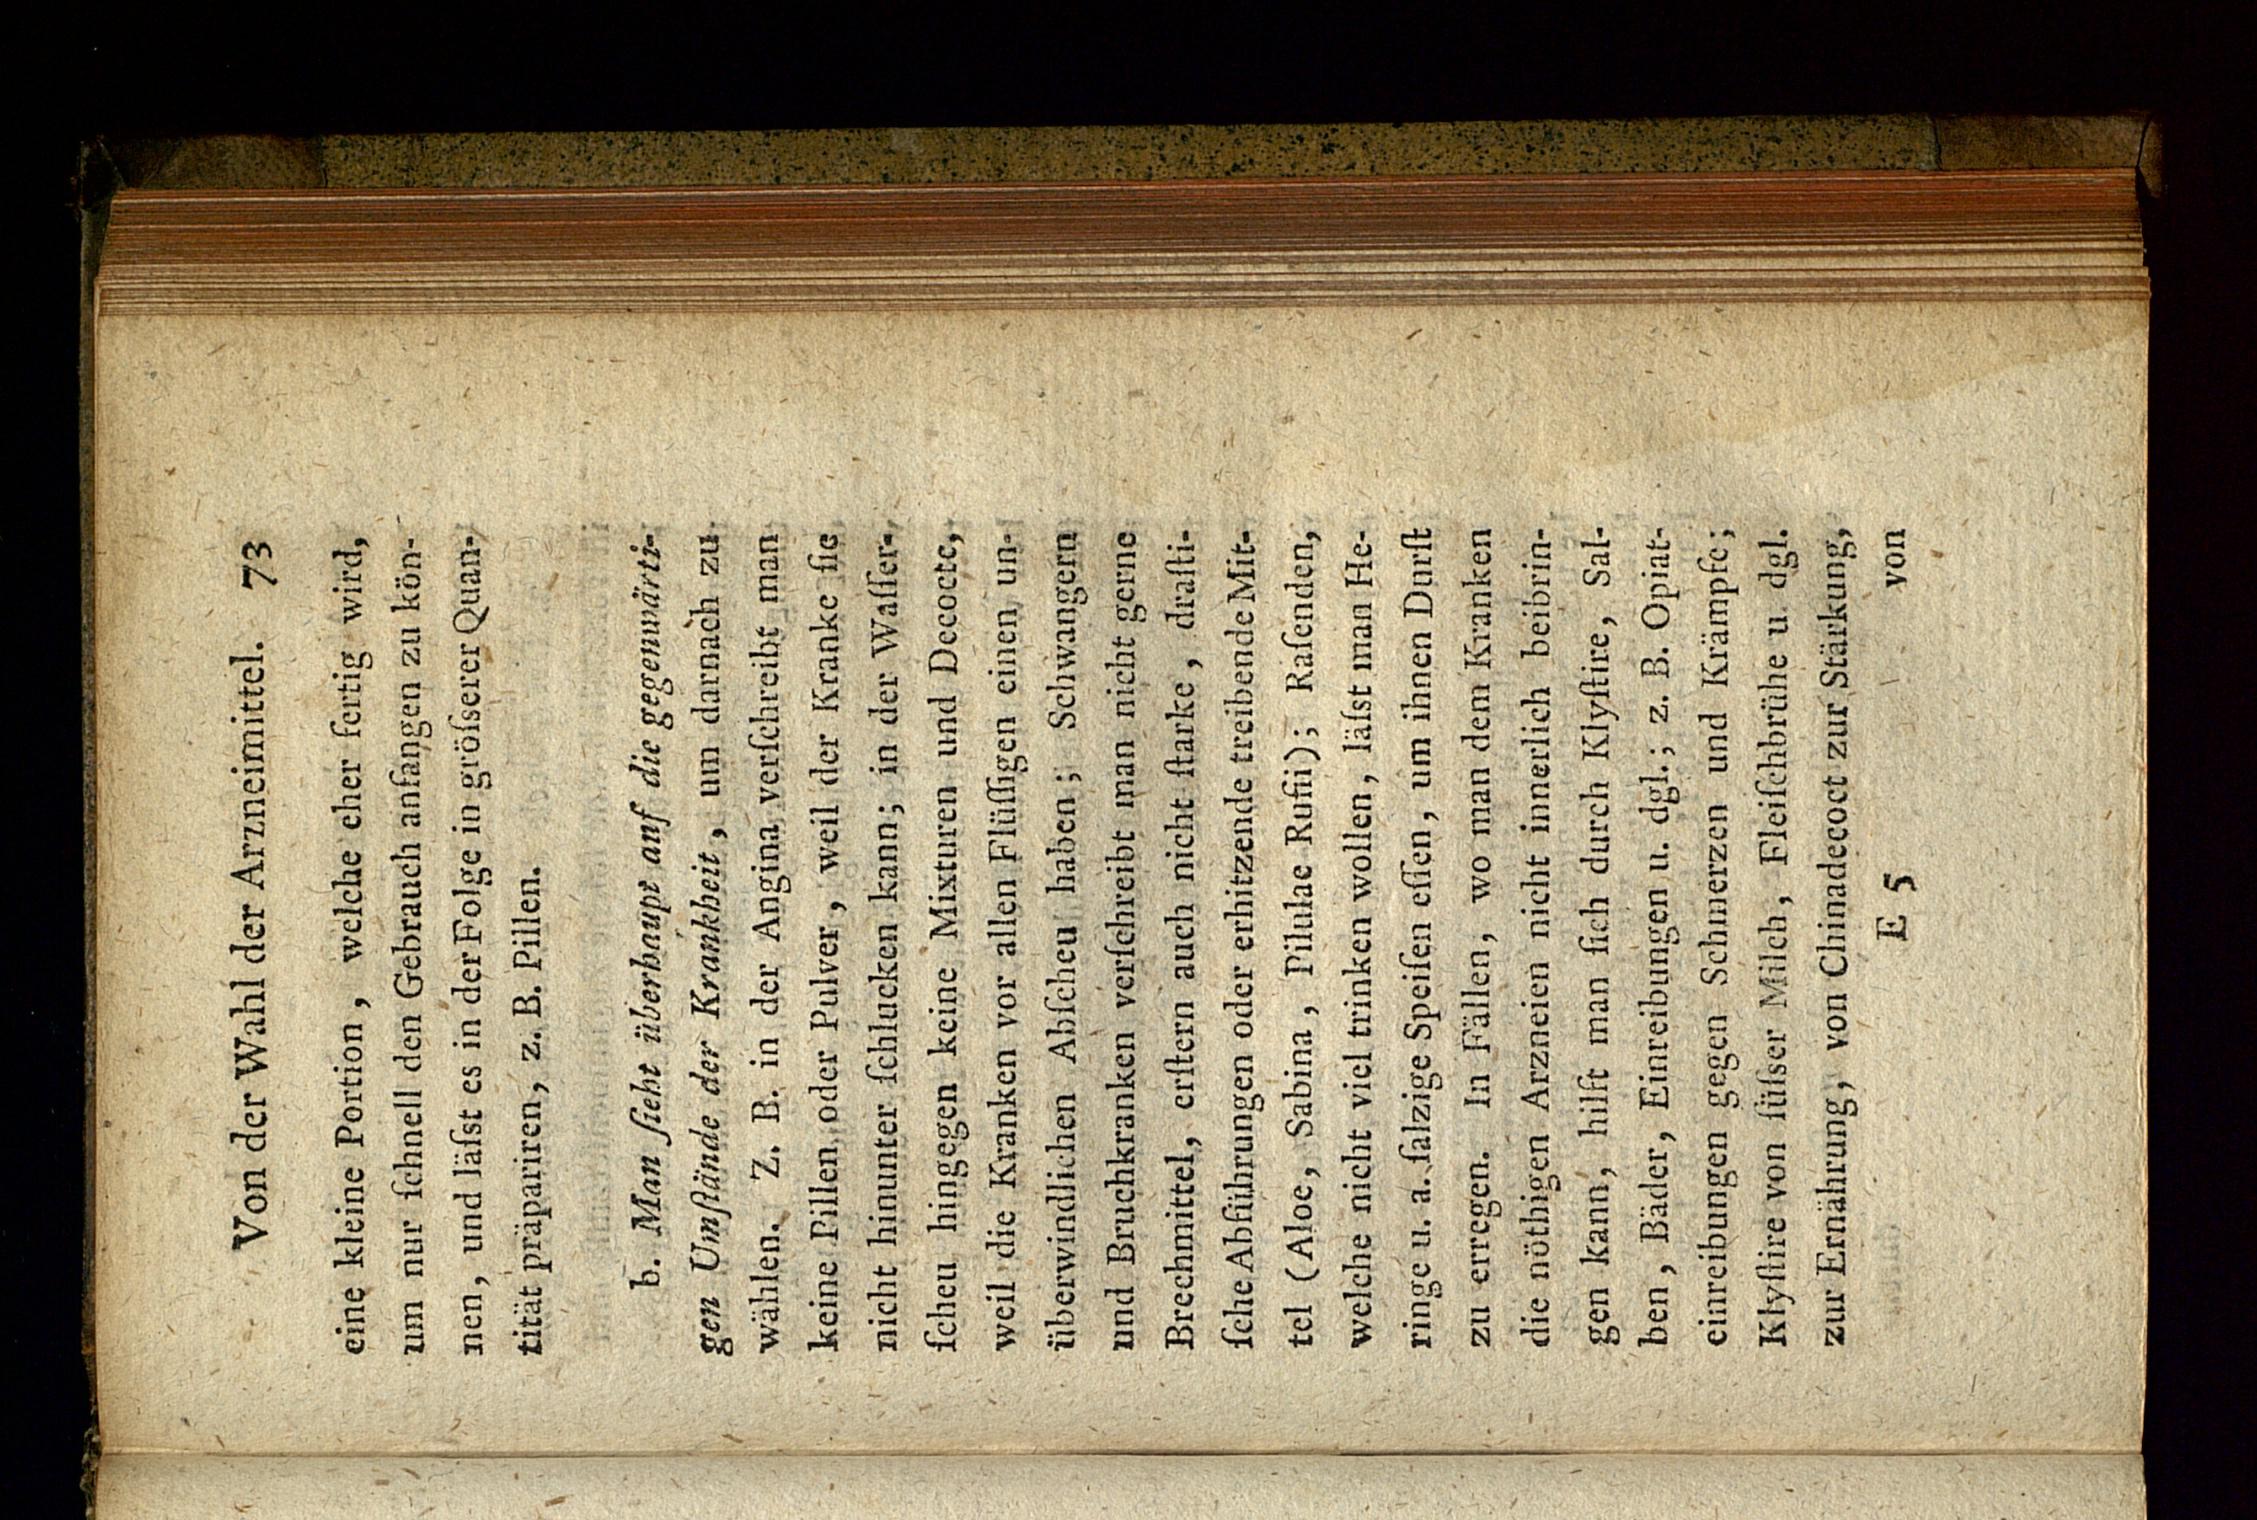 Von der Wahl der Arzneimittel. 73
eine kleine Portion, welche eher fertig wird,
um nur ſchnell den Gebrauch anfangen zu kön-
nen, und läſst es in der Folge in gröſserer Quan-
tität präpariren, z. B. Pillen.
b. Man ſieht überhaupt auf die gegenwärti-
gen Umſtände der Krankheit, um darnach zu
wählen. Z. B. in der Angina verſchreibt man
keine Pillen oder Pulver, weil der Kranke ſie
nicht hinunter ſchlucken kann; in der Waſſer-
ſcheu hingegen keine Mixturen und Decocte,
weil die Kranken vor allen Flüſſigen einen un-
überwindlichen Abſcheu haben; Schwangern
und Bruchkranken verſchreibt man nicht gerne
Brechmittel, erſtern auch nicht ſtarke, draſti-
ſche Abführungen oder erhitzende treibende Mit-
tel (Aloe, Sabina, Pilulae Rufii); Raſenden,
welche nicht viel trinken wollen, läſst man He-
ringe u. a. ſalzige Speiſen eſſen, um ihnen Durſt
zu erregen. In Fällen, wo man dem Kranken
die nöthigen Arzneien nicht innerlich beibrin-
gen kann, hilft man ſich durch Klyſtire, Sal-
ben, Bäder, Einreibungen u. dgl.; z. B. Opiat-
einreibungen gegen Schmerzen und Krämpfe;
Klyſtire von ſüſser Milch, Fleiſchbrühe u. dgl.
zur Ernährung, von Chinadecoct zur Stärkung,
E 5 von